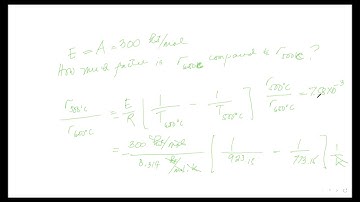 E = A = 300 kJ/mol
How much faster is r600°C compound to r500°C ?
r500°C / r600°C = E/R [ 1/T600°C - 1/T500°C ] r500°C / r600°C
= -300 kJ/mol / 8.314 [ 1/923.15 - 1/773.15 ] 1/K